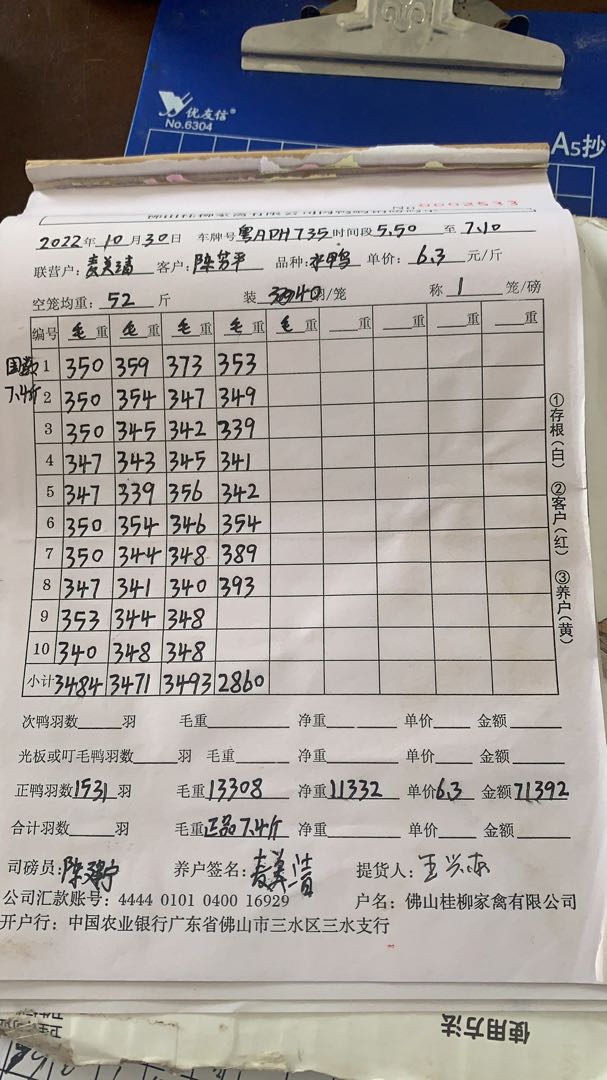 优友信®
No.6304
A5抄
No 0002533
2022年10月30日 车牌号粤ADH735时间段5.50至7.10
联营户：麦美清 客户：陈芳平 品种：水鸭 单价：6.3元/斤
空笼均重：52斤 装 40羽/笼 称1笼/磅
编号 毛重 毛重 毛重 毛重 毛重 重 重 重 重
国数 7.4斤
1 350 359 373 353
2 350 354 347 349
3 350 345 342 339
4 347 343 345 341
5 347 339 356 342
6 350 354 346 354
7 350 344 348 389
8 347 341 340 393
9 353 344 348
10 340 348 348
小计 3484 3471 3493 2860
①存根(白) ②客户(红) ③养户(黄)
次鸭羽数 羽 毛重 净重 单价 金额
光板或叮毛鸭羽数 羽 毛重 净重 单价 金额
正鸭羽数1531羽 毛重13308 净重11332 单价6.3 金额71392
合计羽数 羽 毛重正品7.4斤 净重 单价 金额
司磅员： 养户签名：麦美清 提货人：
公司汇款账号：4444 0101 0400 16929 户名：佛山桂柳家禽有限公司
开户行：中国农业银行广东省佛山市三水区三水支行
使用方法